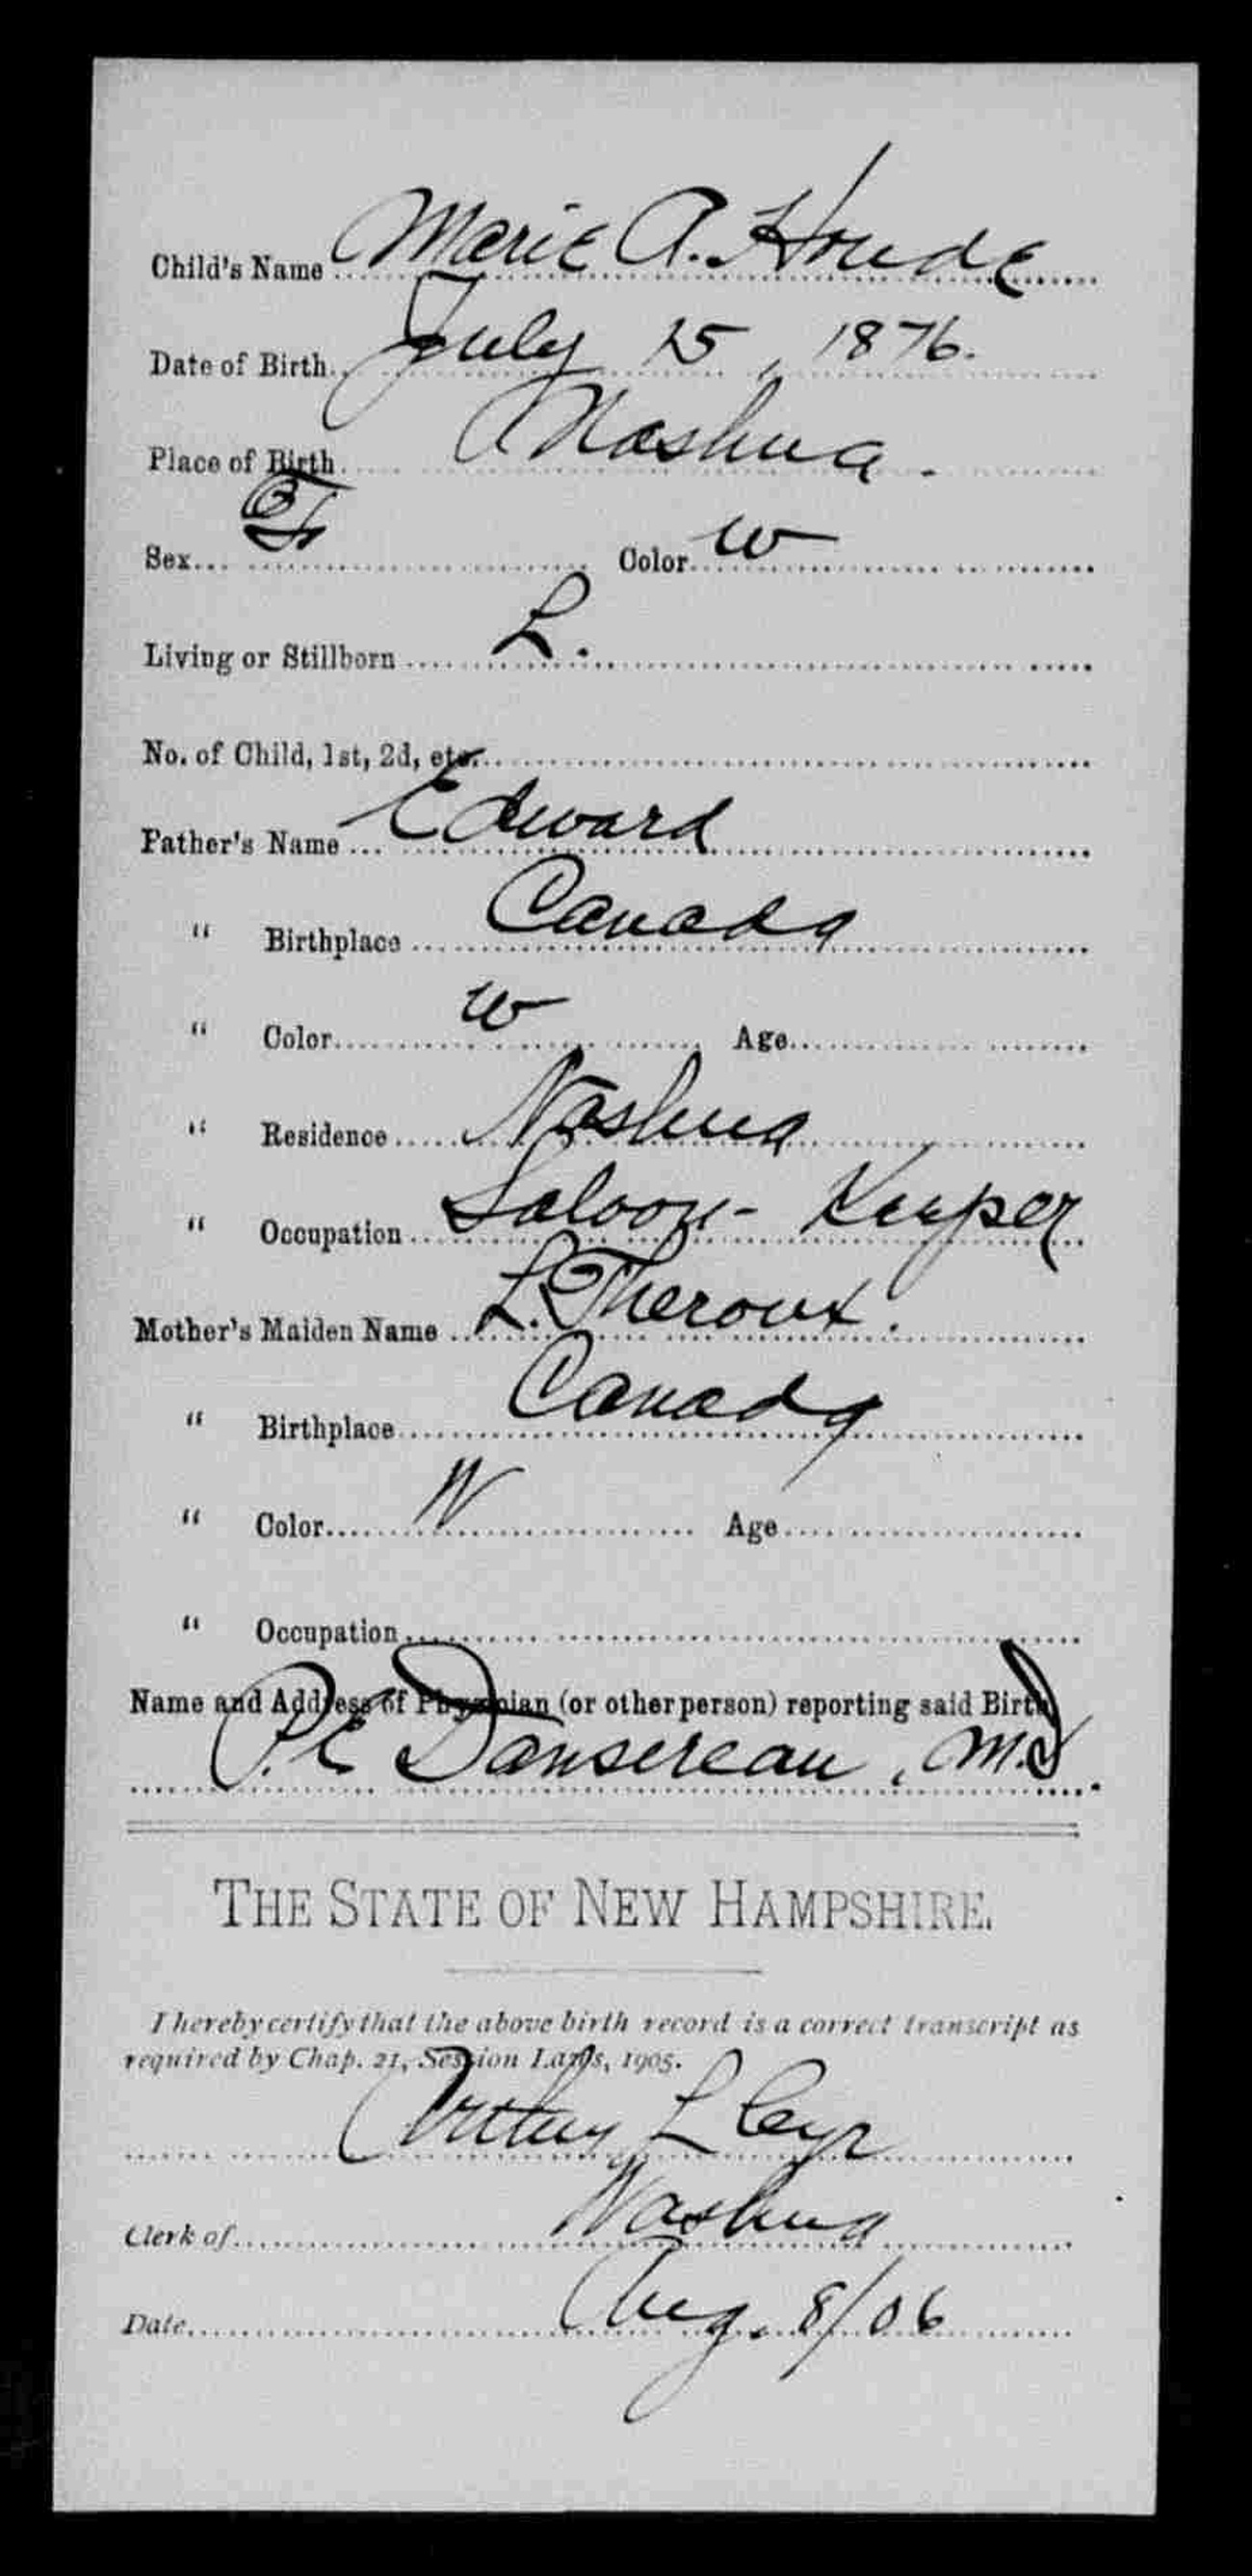 Child's Name Marie A. Houde
Date of Birth July 15, 1876.
Place of Birth Nashua.
Sex F Color W
Living or Stillborn L.
No. of Child, 1st, 2d, etc.
Father's Name Edward
" Birthplace Canada
" Color W Age
" Residence Nashua
" Occupation Saloon-Keeper
Mother's Maiden Name L. Theroux.
" Birthplace Canada
" Color W Age
" Occupation
Name and Address of Physician (or other person) reporting said Birth
P. E Dansereau, M.D.
THE STATE OF NEW HAMPSHIRE.
I hereby certify that the above birth record is a correct transcript as
required by Chap. 21, Session Laws, 1905.
Arthur L Cyr
Clerk of Nashua
Date Aug. 8/06